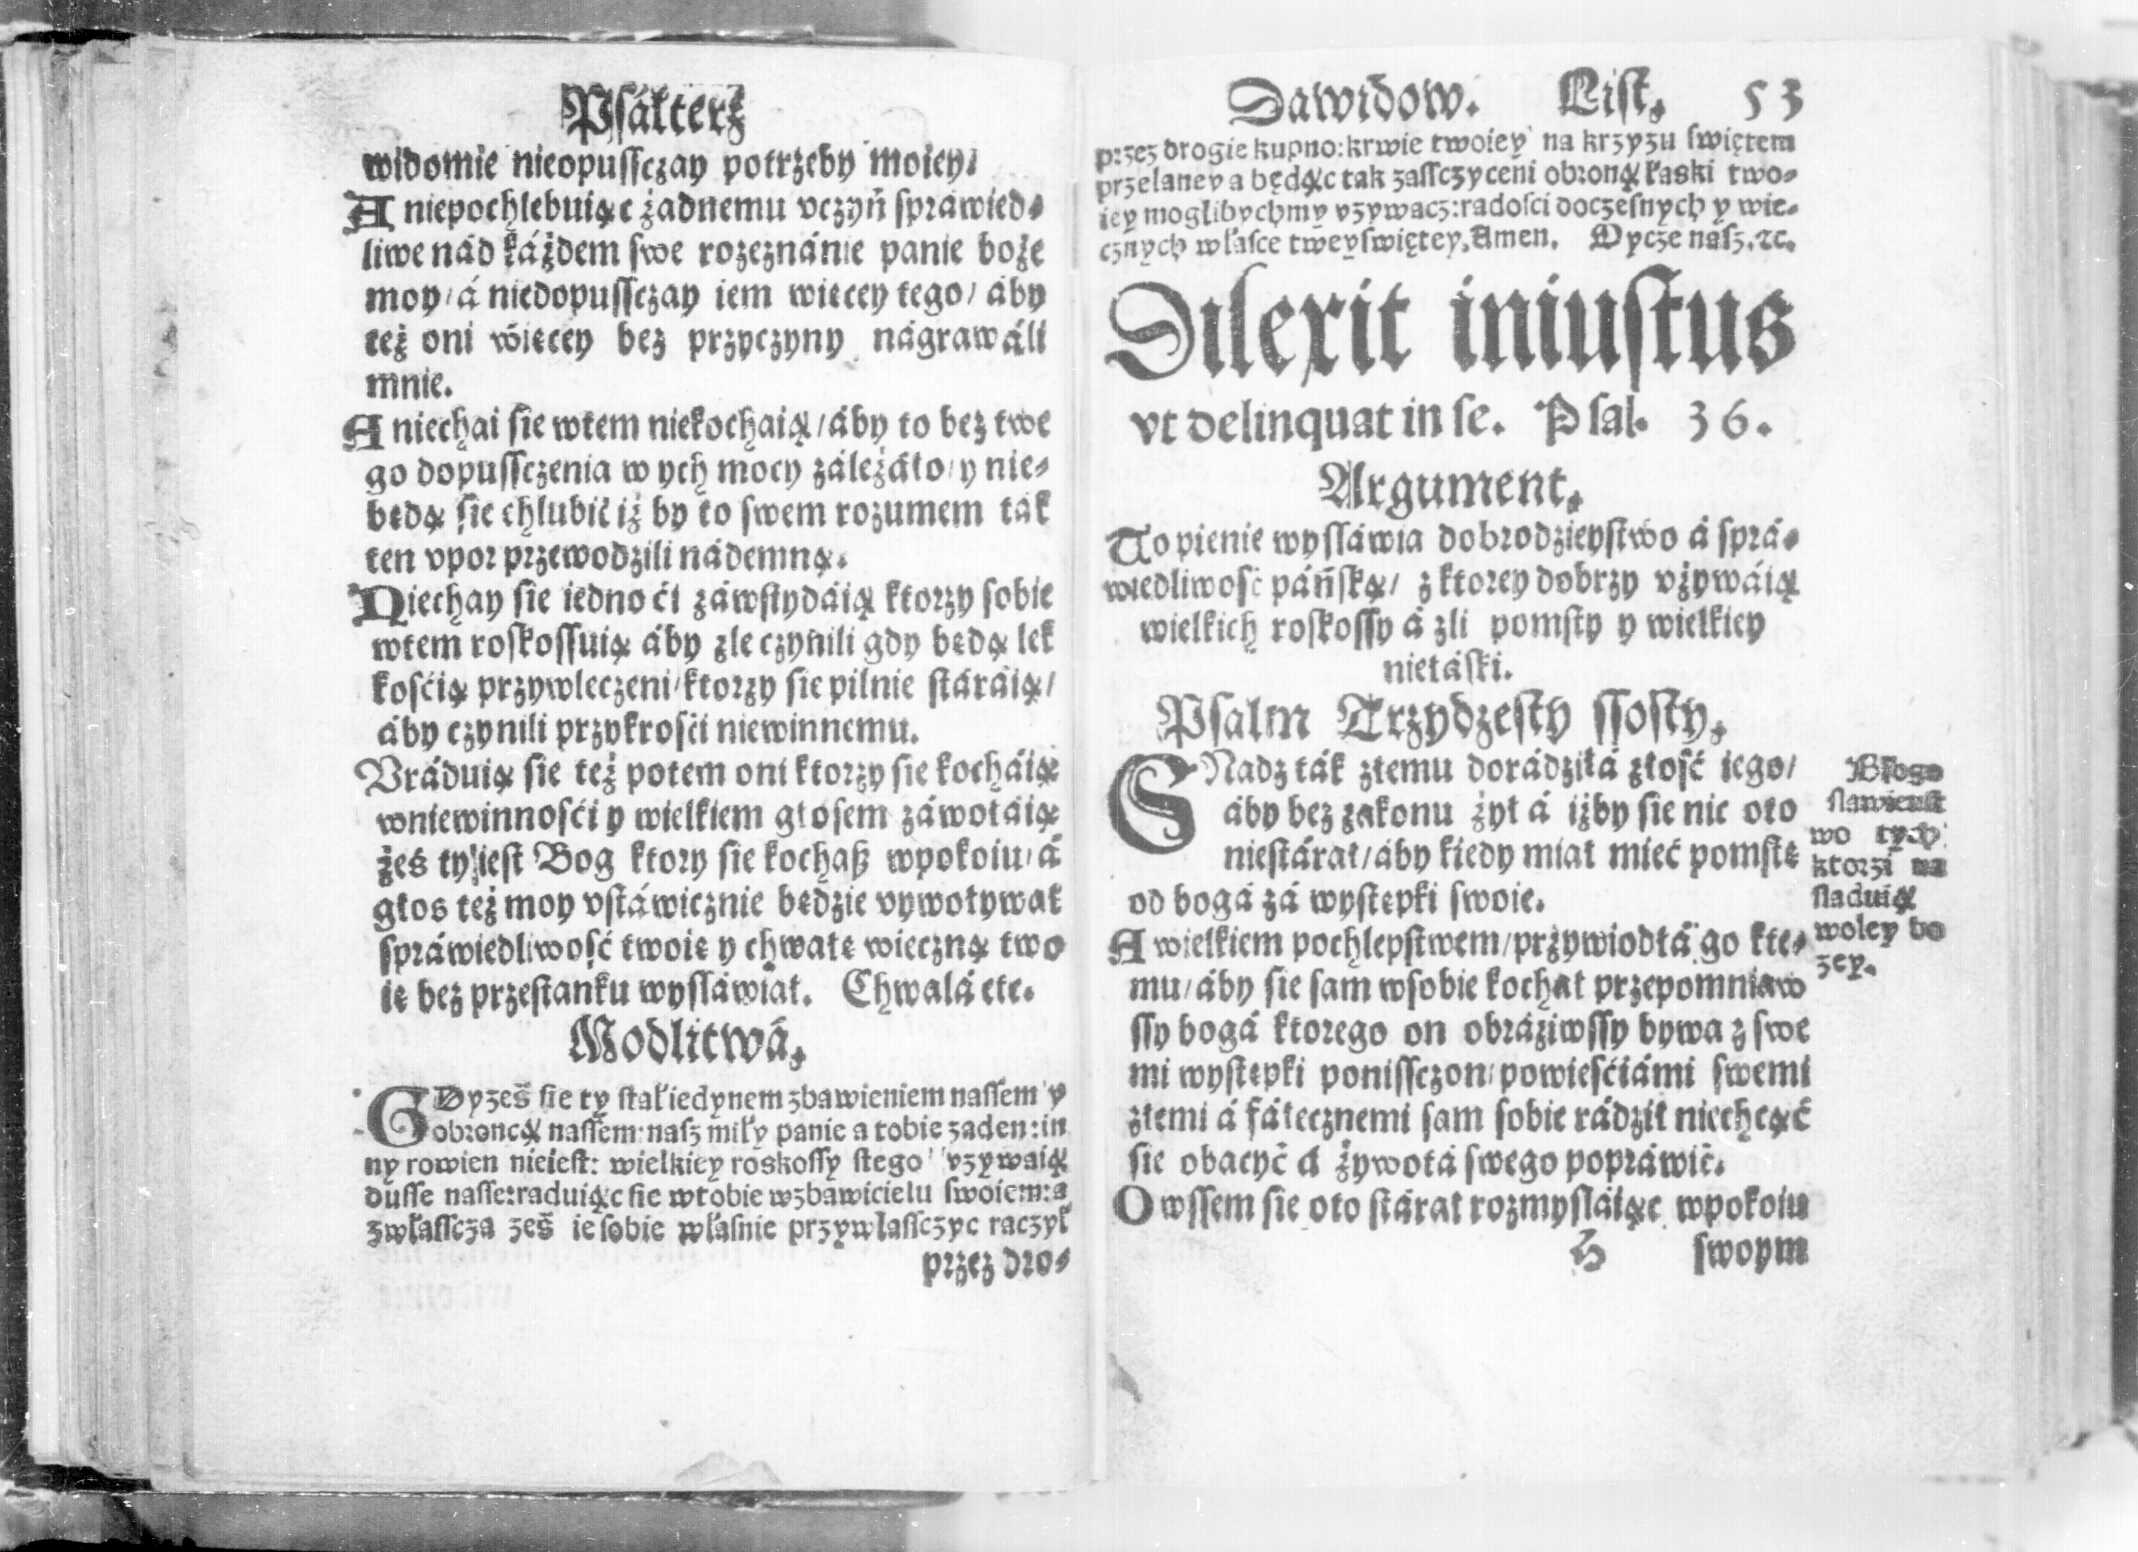 Psałterz
widomie nieopussczay potrzeby moiey.
A niepochlebuiąc żadnemu vczyń sprawied-
liwe nád káżdem swe rozeznánie panie boże
moy/ á niedopussczay iem więcey tego/ áby
też oni więcey bez przyczyny nágrawáli
mnie.
A niechai sie wtem niekochaią/ áby to bez twe
go dopussczenia w ych mocy záleżáło/ y nie-
będą sie chlubić iż by to swem rozumem ták
ten vpor przewodzili nádemną.
Niechay sie iedno ći záwstydáią ktorzy sobie
wtem roskossuią áby zle czynili gdy będą lek
kośćią przywleczeni/ ktorzy sie pilnie stáráią/
áby czynili przykrośći niewinnemu.
Vráduią sie też potem oni ktorzy sie kocháią
wniewinnośći y wielkiem głosem záwołáią
żeś ty iest Bog ktory sie kochaß wpokoiu/ á
głos też moy vstáwicznie będzie vywoływał
spráwiedliwość twoię y chwałę wieczną two
ię bez przestanku wysláwiał. Chwałá etc.
Modlitwá.
GDyześ sie ty stał iedynem zbawieniem nassem y
obroncą nassem: nasz miły panie a tobie zaden: in
ny rowien nieiest: wielkiey roskossy stego vzywaią
dusse nasse: raduiąc sie wtobie wzbawicielu swoiem: a
zwłasscza ześ ie sobie własnie przywłassczyc raczył
przez dro-
Dawidow. List. 53
przez drogie kupno: krwie twoiey na krzyzu swiętem
przelaney a będąc tak zassczyceni obroną łaski two-
iey moglibychmy vzywacz: radosci doczesnych y wie-
cznych włásce twey swiętey. Amen. Oycze nasz. ꝛc.
Dilexit iniustus
vt delinquat in se. Psal. 36.
Argument.
To pienie wysláwia dobrodzieystwo á sprá-
wiedliwość páńską/ z ktorey dobrzy vżywáią
wielkich roskossy á zli pomsty y wielkiey
niełáski.
Psalm Trzydzesty ssosty.
SNadz ták złemu dorádziłá złość iego/
áby bez zakonu żył á iżby sie nic oto
niestárał/ áby kiedy miał mieć pomstę
od bogá zá występki swoie.
A wielkiem pochlepstwem/ przywiodłá go kte-
mu/ áby sie sam wsobie kochał przepomniaw
ssy bogá ktorego on obráziwssy bywa z swe
mi występki ponissczon/ powieśćiámi swemi
złemi á fáłecznemi sam sobie rádził niechcąć
sie obacyć á żywotá swego popráwić.
Owssem sie oto stárał rozmysláiąc wpokoiu
H swoym
Błogo
slawienst
wo tych
ktorzi na
sladuią
woley bo
zey.